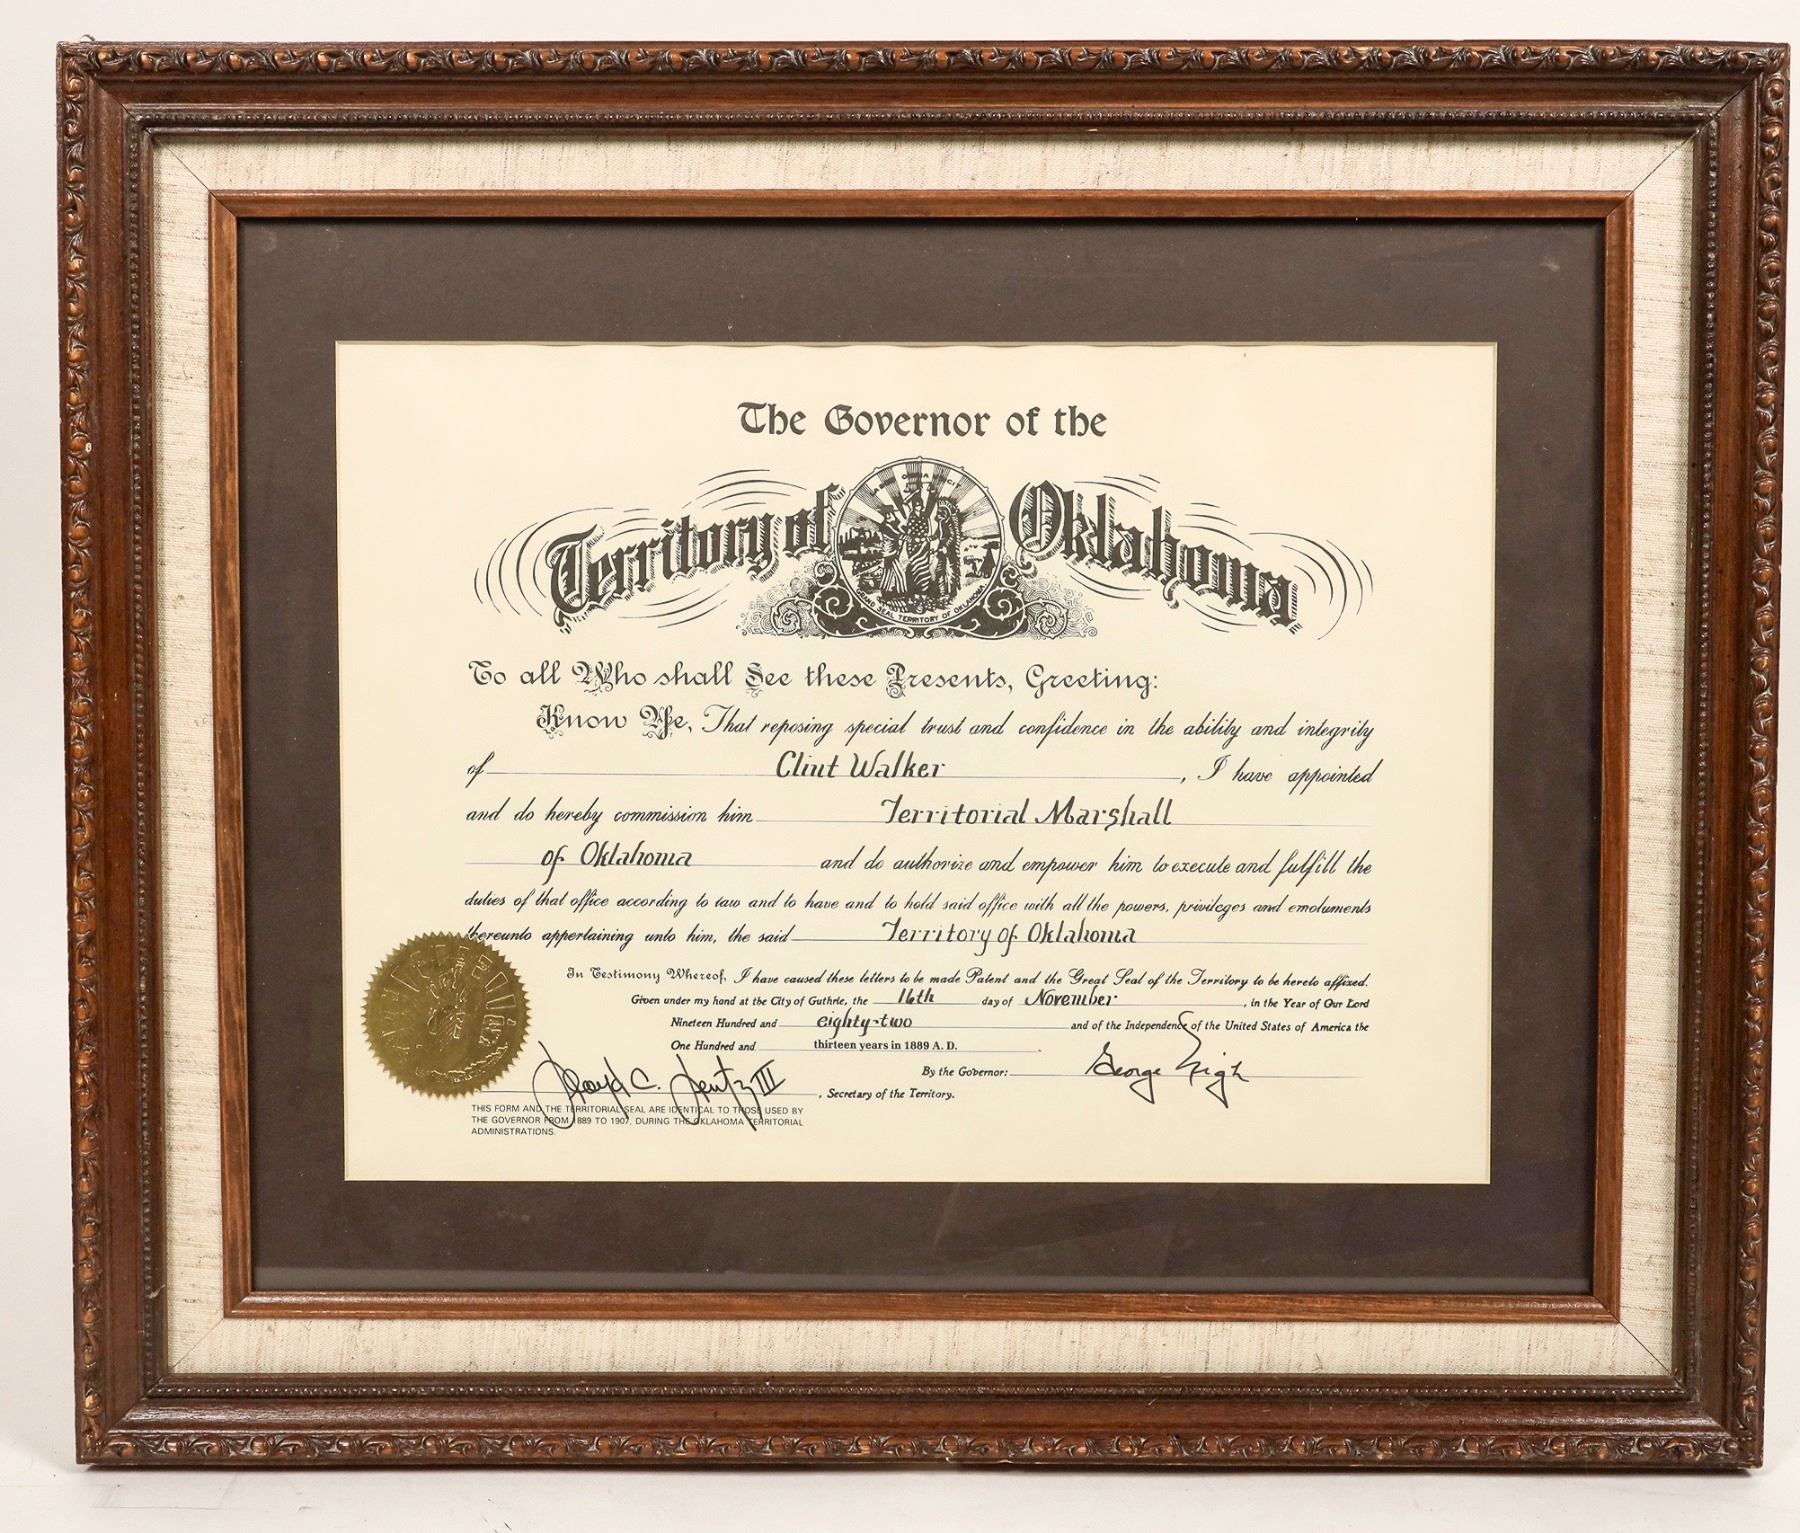 The Governor of the
Territory of Oklahoma
LABOR OMNIA VINCIT
GRAND SEAL TERRITORY OF OKLAHOMA
To all Who shall See these Presents, Greeting:
Know Ye, That reposing special trust and confidence in the ability and integrity
of Clint Walker, I have appointed
and do hereby commission him Territorial Marshall
of Oklahoma and do authorize and empower him to execute and fulfill the
duties of that office according to law and to have and to hold said office with all the powers, privileges and emoluments
thereunto appertaining unto him, the said Territory of Oklahoma
In Testimony Whereof, I have caused these letters to be made Patent and the Great Seal of the Territory to be hereto affixed.
Given under my hand at the City of Guthrie, the 16th day of November, in the Year of Our Lord
Nineteen Hundred and eighty-two and of the Independence of the United States of America the
One Hundred and thirteen years in 1889 A.D.
By the Governor: George Nigh
Lloyd C. Lentz III, Secretary of the Territory.
THIS FORM AND THE TERRITORIAL SEAL ARE IDENTICAL TO THOSE USED BY
THE GOVERNOR FROM 1889 TO 1907, DURING THE OKLAHOMA TERRITORIAL
ADMINISTRATIONS.